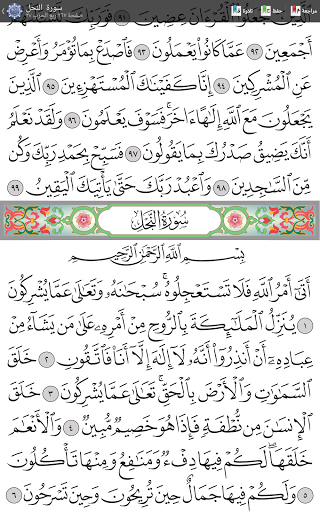 سورة النحل
حفظ
تلاوة
مراجعة
ٱلَّذِينَ جَعَلُوا۟ ٱلْقُرْءَانَ عِضِينَ ٩١ فَوَرَبِّكَ
أَجْمَعِينَ ٩٢ عَمَّا كَانُوا۟ يَعْمَلُونَ ٩٣ فَٱصْدَعْ بِمَا تُؤْمَرُ وَأَعْرِضْ
عَنِ ٱلْمُشْرِكِينَ ٩٤ إِنَّا كَفَيْنَٰكَ ٱلْمُسْتَهْزِءِينَ ٩٥ ٱلَّذِينَ
يَجْعَلُونَ مَعَ ٱللَّهِ إِلَٰهًا ءَاخَرَ ۚ فَسَوْفَ يَعْلَمُونَ ٩٦ وَلَقَدْ نَعْلَمُ
أَنَّكَ يَضِيقُ صَدْرُكَ بِمَا يَقُولُونَ ٩٧ فَسَبِّحْ بِحَمْدِ رَبِّكَ وَكُن
مِّنَ ٱلسَّٰجِدِينَ ٩٨ وَٱعْبُدْ رَبَّكَ حَتَّىٰ يَأْتِيَكَ ٱلْيَقِينُ ٩٩
سُورَةُ النَّحْلِ
بِسْمِ ٱللَّهِ ٱلرَّحْمَٰنِ ٱلرَّحِيمِ
أَتَىٰٓ أَمْرُ ٱللَّهِ فَلَا تَسْتَعْجِلُوهُ ۚ سُبْحَٰنَهُۥ وَتَعَٰلَىٰ عَمَّا يُشْرِكُونَ
١ يُنَزِّلُ ٱلْمَلَٰٓئِكَةَ بِٱلرُّوحِ مِنْ أَمْرِهِۦ عَلَىٰ مَن يَشَآءُ مِنْ
عِبَادِهِۦٓ أَنْ أَنذِرُوٓا۟ أَنَّهُۥ لَآ إِلَٰهَ إِلَّآ أَنَا۠ فَٱتَّقُونِ ٢ خَلَقَ
ٱلسَّمَٰوَٰتِ وَٱلْأَرْضَ بِٱلْحَقِّ ۚ تَعَٰلَىٰ عَمَّا يُشْرِكُونَ ٣ خَلَقَ
ٱلْإِنسَٰنَ مِن نُّطْفَةٍ فَإِذَا هُوَ خَصِيمٌ مُّبِينٌ ٤ وَٱلْأَنْعَٰمَ
خَلَقَهَا ۗ لَكُمْ فِيهَا دِفْءٌ وَمَنَٰفِعُ وَمِنْهَا تَأْكُلُونَ
٥ وَلَكُمْ فِيهَا جَمَالٌ حِينَ تُرِيحُونَ وَحِينَ تَسْرَحُونَ ٦